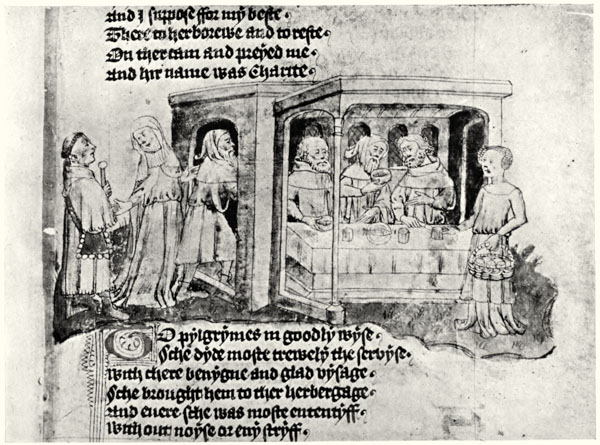 And I suppose ffor my beste.
There to herborewe and to reste
On ther cam and preyed me.
And hir name was Charite.
TO pylgrymes in goodly wyse.
Sche dyde moste trewely the servyse.
With there benygne and glad vysage
Sche brought hem to ther herbergage
And evere sche was moste ententyff.
With out noyse or eny stryff.